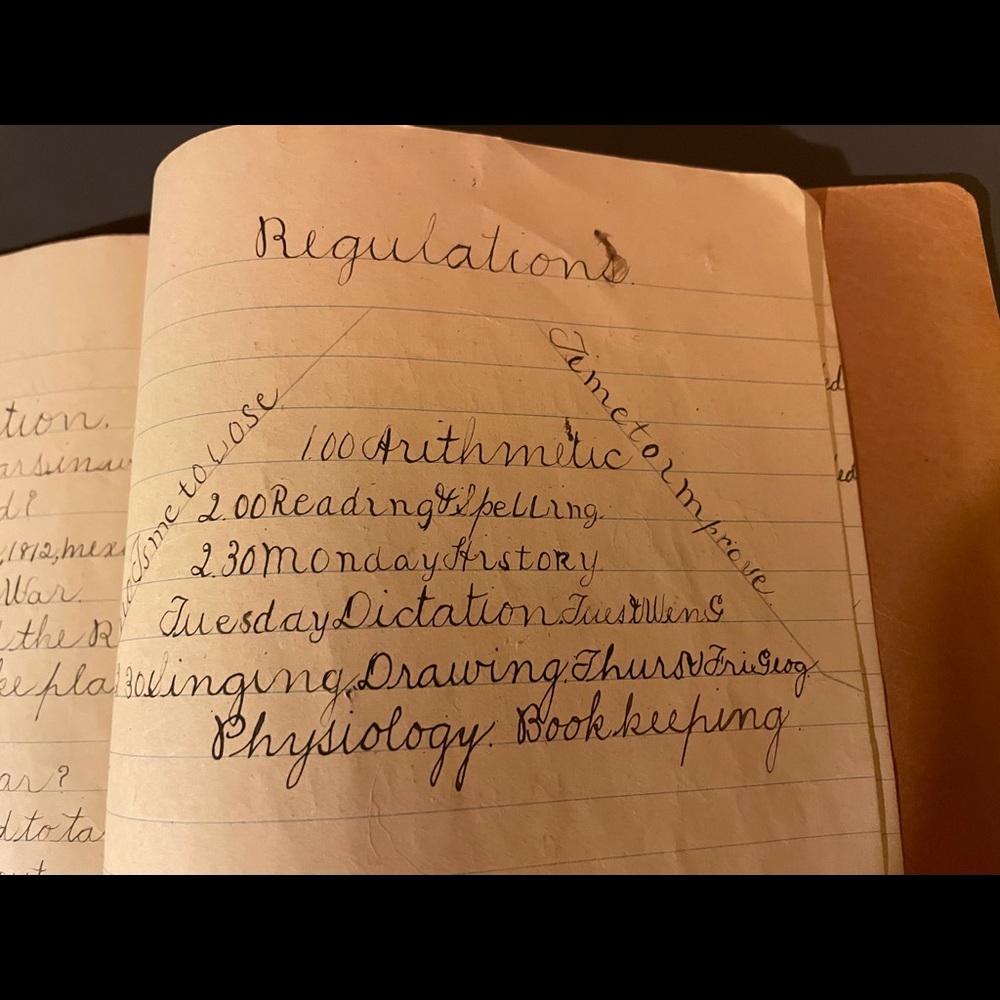 Regulations.
time to Lose
Time to Improve.
1.00 Arithmetic
2.00 Reading & Spelling.
2.30 Monday History
Tuesday Dictation. Tues & Wen G
30 Singing, Drawing. Thurs & Fri. Geog.
Physiology. Bookkeeping.
tion.
d?
1812, mex
War.
the R
ke pla
ar?
d to ta
out
ed
ed